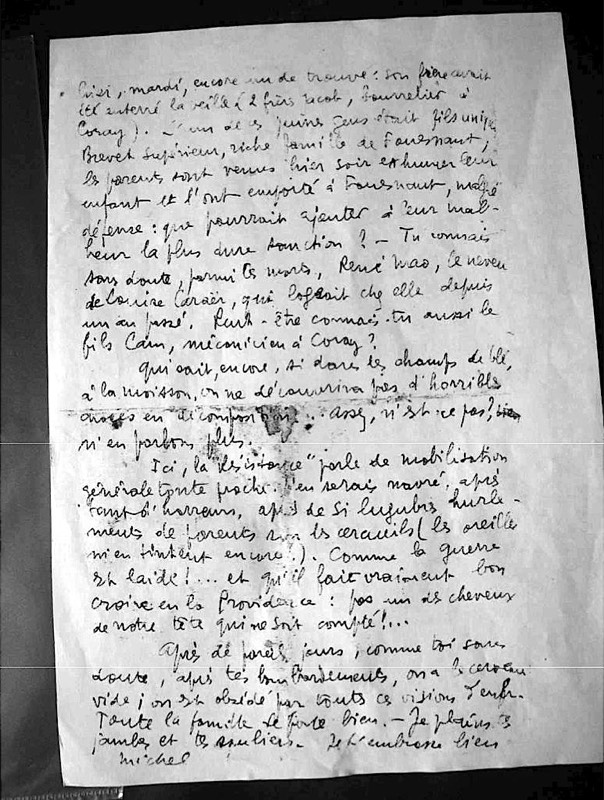 mardi, encore un de trouvé : son frère avait
été enterré la veille (2 frères Jacob, Bourrelier à
Coray). L'un de ces jeunes gens était fils unique
Brevet Supérieur, riche famille de Fouesnant,
les parents sont venus hier soir exhumer leur
enfant et l'ont emporté à Fouesnant, malgré
défense : que pourrait ajouter à leur mal-
heur la plus dure sanction ? — Tu connais
sans doute, parmi les morts, René Mao, le neveu
de Louise Caraës, qui logeait chez elle depuis
un an passé. Peut-être connais-tu aussi le
fils Cam, mécanicien à Coray ?
Qui sait, encore, si dans les champs de blé,
à la moisson, on ne découvrira pas d'horribles
en décomposition... assez, n'est-ce pas ?
n'en parlons plus.
Ici, la "Résistance" parle de mobilisation
générale toute proche. J'en serais navré, après
tant d'horreurs, après de si lugubres hurle-
ments de parents sur les cercueils (les oreilles
m'en tintent encore !). Comme la guerre
est laide !... et qu'il fait vraiment bon
croire en la Providence : pas un des cheveux
de notre tête qui ne soit compté !...
Après de pareils jours, comme toi sans
doute, après tes bombardements, on a le cerveau
vide ; on est obsédé par toutes ces visions d'enfer.
Toute la famille se porte bien. — Je plains tes
jambes et tes souliers. Je t'embrasse bien
Michel